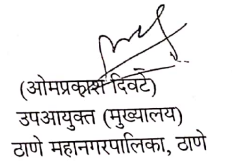 (ओमप्रकाश दिवटे)
उपआयुक्त (मुख्यालय)
ठाणे महानगरपालिका, ठाणे